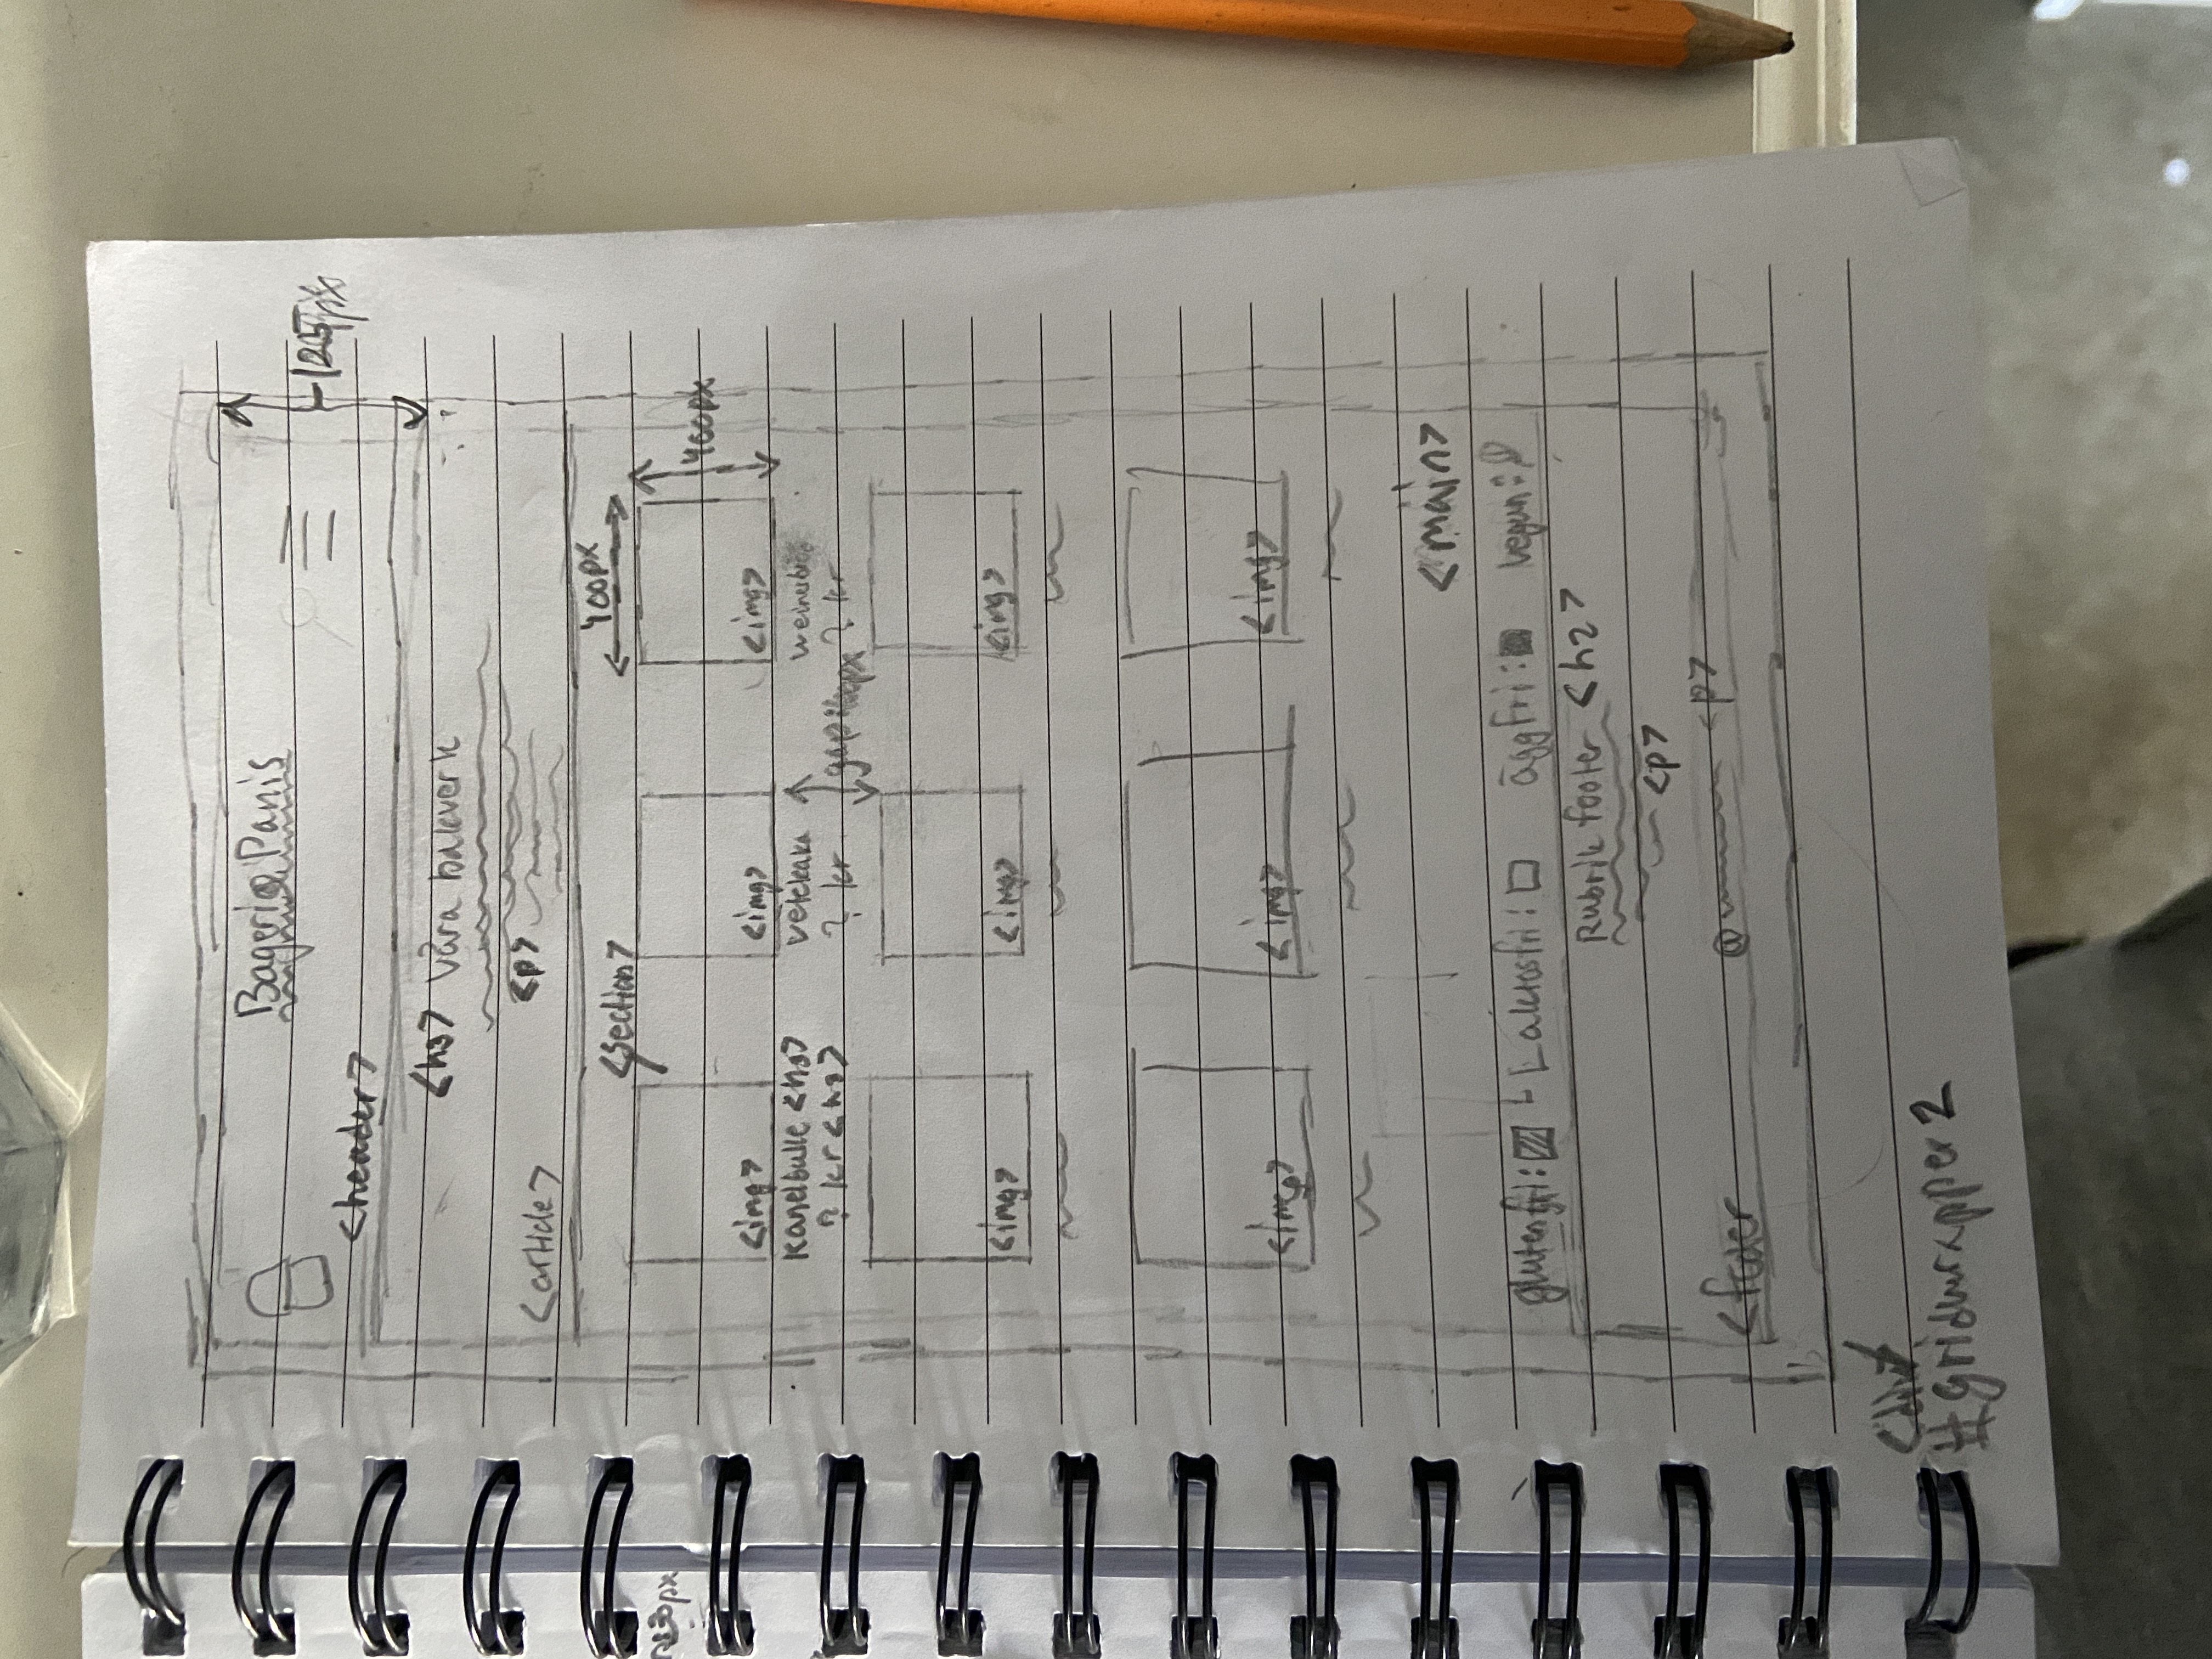 Bageri Panis
125px
<header>
<h3> våra bakverk
<p>
<article>
<section>
400px
400px
<img> <img> <img>
Kanelbulle <h3> Vetekaka
? kr <h3> ? kr ? kr
<img> <img> <img>
<img> <img> <img>
<main>
glutenfri: Laktosfri: äggfri: vegan:
Rubrik footer <h2>
<p>
@ <p>
<footer
<div>
#gridwrapper2